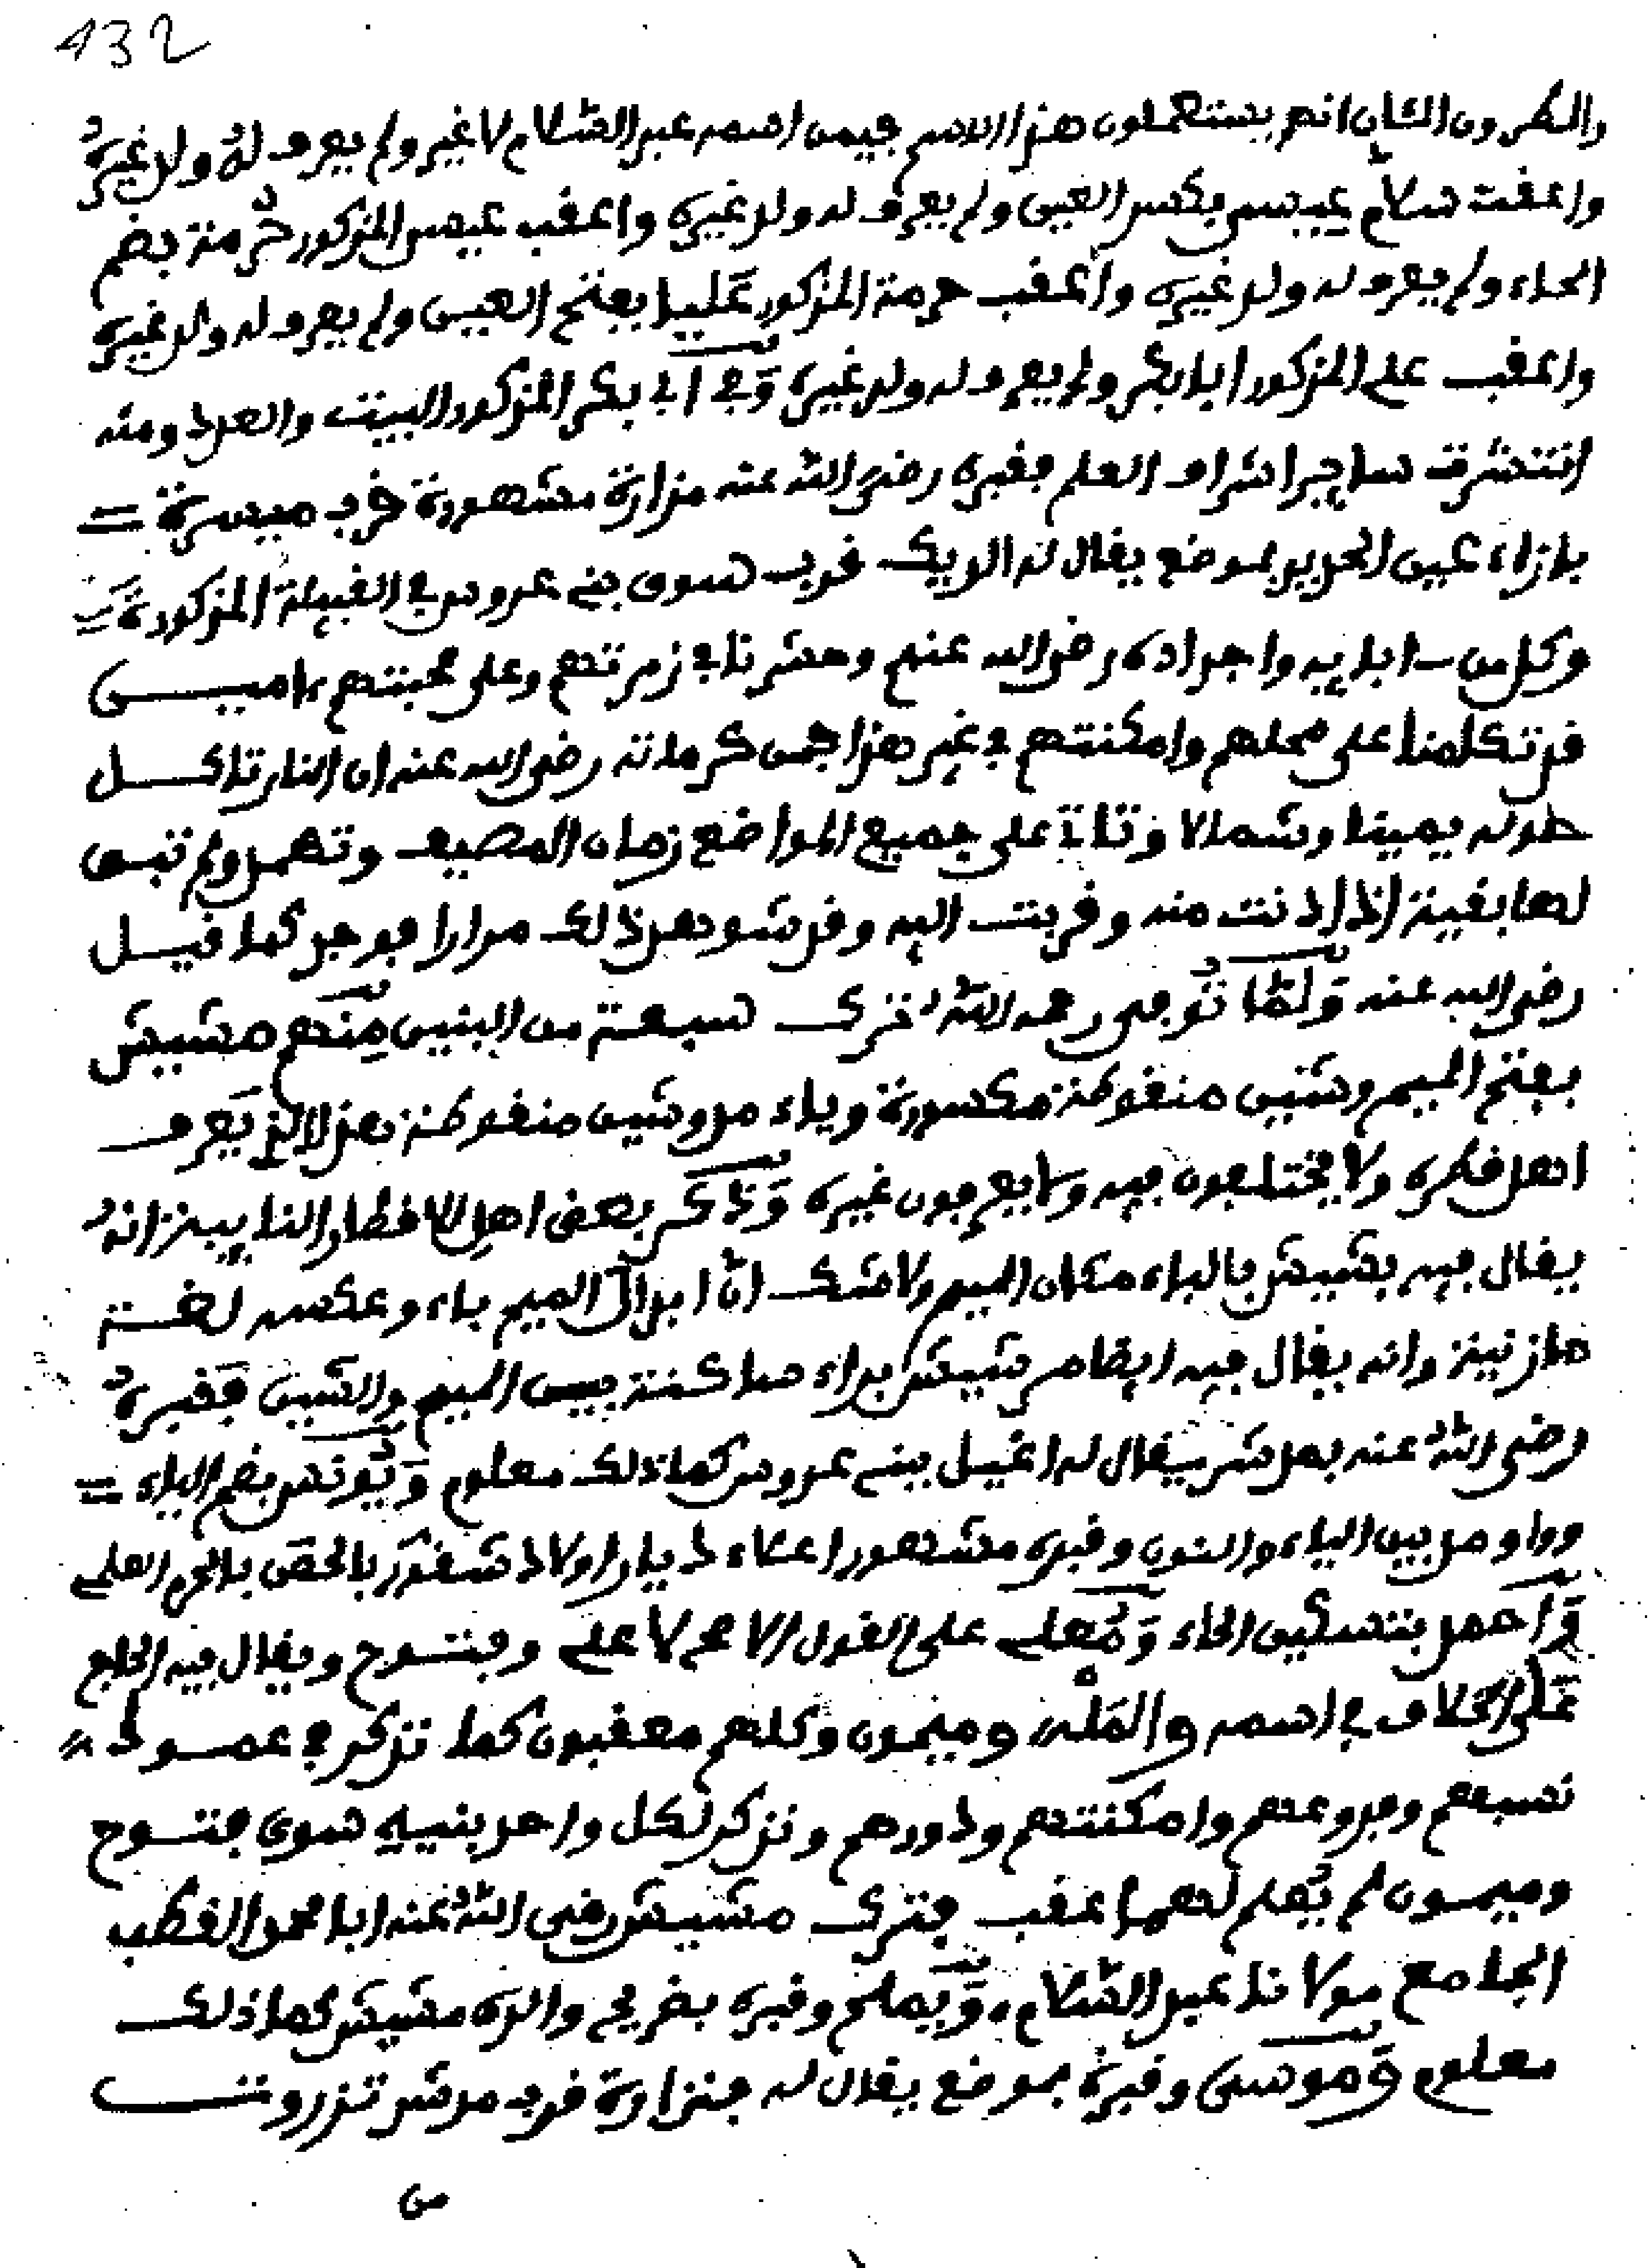 432
والمطردن الشأن انهم يستعملون هذا الاسم فيمن اسمه عبد السلام لا غير ولم يعرف له ولد غيره
واعقب سلام عيسى بكسر العين ولم يعرف له ولد غيره واعقب عيسى المذكور حُرمة بضم
الحاء ولم يعرف له ولد غيره وأعقب حرمة المذكور عَليا بفتح العين ولم يعرف له ولد غيره
واعقب علي المذكور ابا بكر ولم يعرف له ولد غيره وَفي أبي بكر المذكور البيت والعدد ومنه
انتشرت ساير اشراف العلم فقبره رضي الله عنه مزارة مشهورة قرب ميسرة
بازاء عين الحديد بموضع يقال له قرب سوق بني عروس في القبيلة المذكورة
وكل من ابايه واجداده رضي الله عنهم وحشرنا في زمرتهم وعلى محبتهم ءاميــن
قد تكلمنا على محلهم وامكنتهم في غير هذا فمن كرماته رضي الله عنه ان النار تاكــل
حوله يمينا وشمالا وتاتي على جميع المواضع زمان المصيف وتهمد ولم تبق
لها بقية اذا دنت منه وقربت اليه وقد شوهد ذلك مرارا فوجد كما قيــل
رضي الله عنه وَلمّا تُوفي رحمه اللهُ ترك سبعة من البنين مِنهم مشيش
بفتح الميم وشين منقوطة مكسورة وياء مد وشين منقوطة هذا الذي يَعرف
اهل قطره ولا يختلفون فيه ولا يعرفون غيره وَذكَر بعض اهل الاقطار النايية انهُ
يقال فيه بشيش بالباء مكان الميم ولا شك انّ ابدال الميم باء وعكسه لغــة
مازنية وانه يقال فيه ايضا مرشيش براء ساكنة بين الميم والشين فقبرهُ
رضي اللهُ عنه بمدشر يقال له اغيل ببني عروس كما ذلك معلوم وَيُونس بضم الياء
وواو مد بين الياء والنون وقبره مشهور ازاء ديار اولاد شقور بالحصن بالحرم العلمي
وَاحمد بتسكين الحاء وَعلي على القول الاصح لا علي وفتوح ويقال فيه الحاج
عَلى الخلاف في اسمه والمَلْهى وميمون وكلهم معقبون كما نذكر في عمــود
نسبهم وفروعهم وامكنتهم ودورهم ونذكر لكل واحد بنيه سوى فتــوح
وميمــون لم يُعلم لهما عقب فترك مشيش رضي اللهُ عنه ابا محمد القطب
الجامع مولانا عبد السّلام وَيملح وقبره بضريح والده مشيش كما ذلك
معلوم وَموسى وقبره بموضع يقال له جنزارة قرب مدشر تزروتــت
من